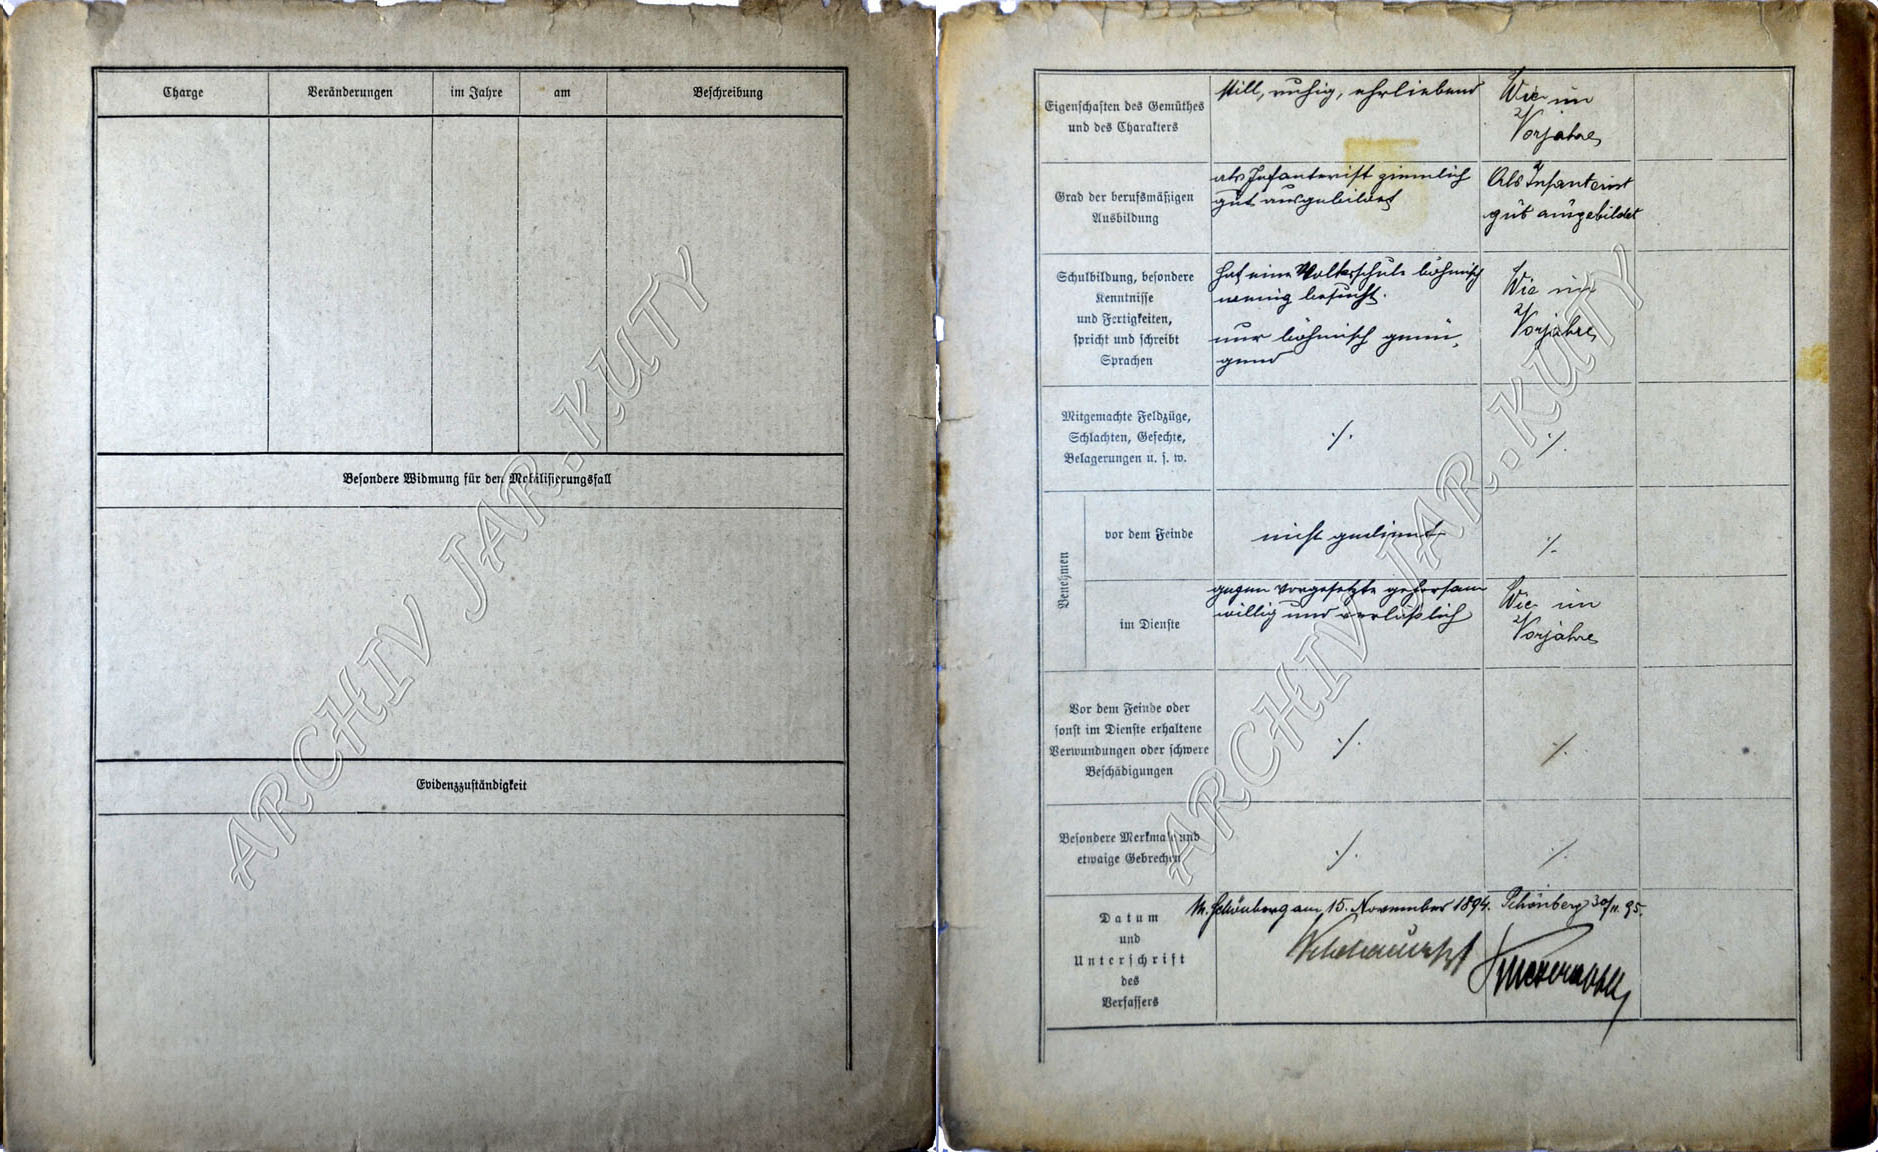 Charge
Veränderungen
im Jahre
am
Beschreibung
Besondere Widmung für den Mobilisierungsfall
Evidenzzuständigkeit
ARCHIV JAR. KUTY
Eigenschaften des Gemüthes
und des Charakters
still, ruhig, ehrliebend
Wie im
Vorjahre
Grad der berufsmäßigen
Ausbildung
als Infanterist ziemlich
gut ausgebildet
Als Infanterist
gut ausgebildet
Schulbildung, besondere
Kenntnisse
und Fertigkeiten,
spricht und schreibt
Sprachen
hat eine Volksschule böhmisch
wenig besucht.
nur böhmisch genü-
gend
Wie im
Vorjahre
Mitgemachte Feldzüge,
Schlachten, Gefechte,
Belagerungen u. s. w.
./.
./.
Benehmen
vor dem Feinde
nicht gedient
./.
im Dienste
gegen Vorgesetzte gehorsam
willig und verläßlich
Wie im
Vorjahre
Vor dem Feinde oder
sonst im Dienste erhaltene
Verwundungen oder schwere
Beschädigungen
./.
./.
Besondere Merkmale und
etwaige Gebrechen
./.
./.
Datum
und
Unterschrift
des
Verfassers
M. Schönberg am 15. November 1894.
Schönberg 30/11. 95.
ARCHIV JAR. KUTY